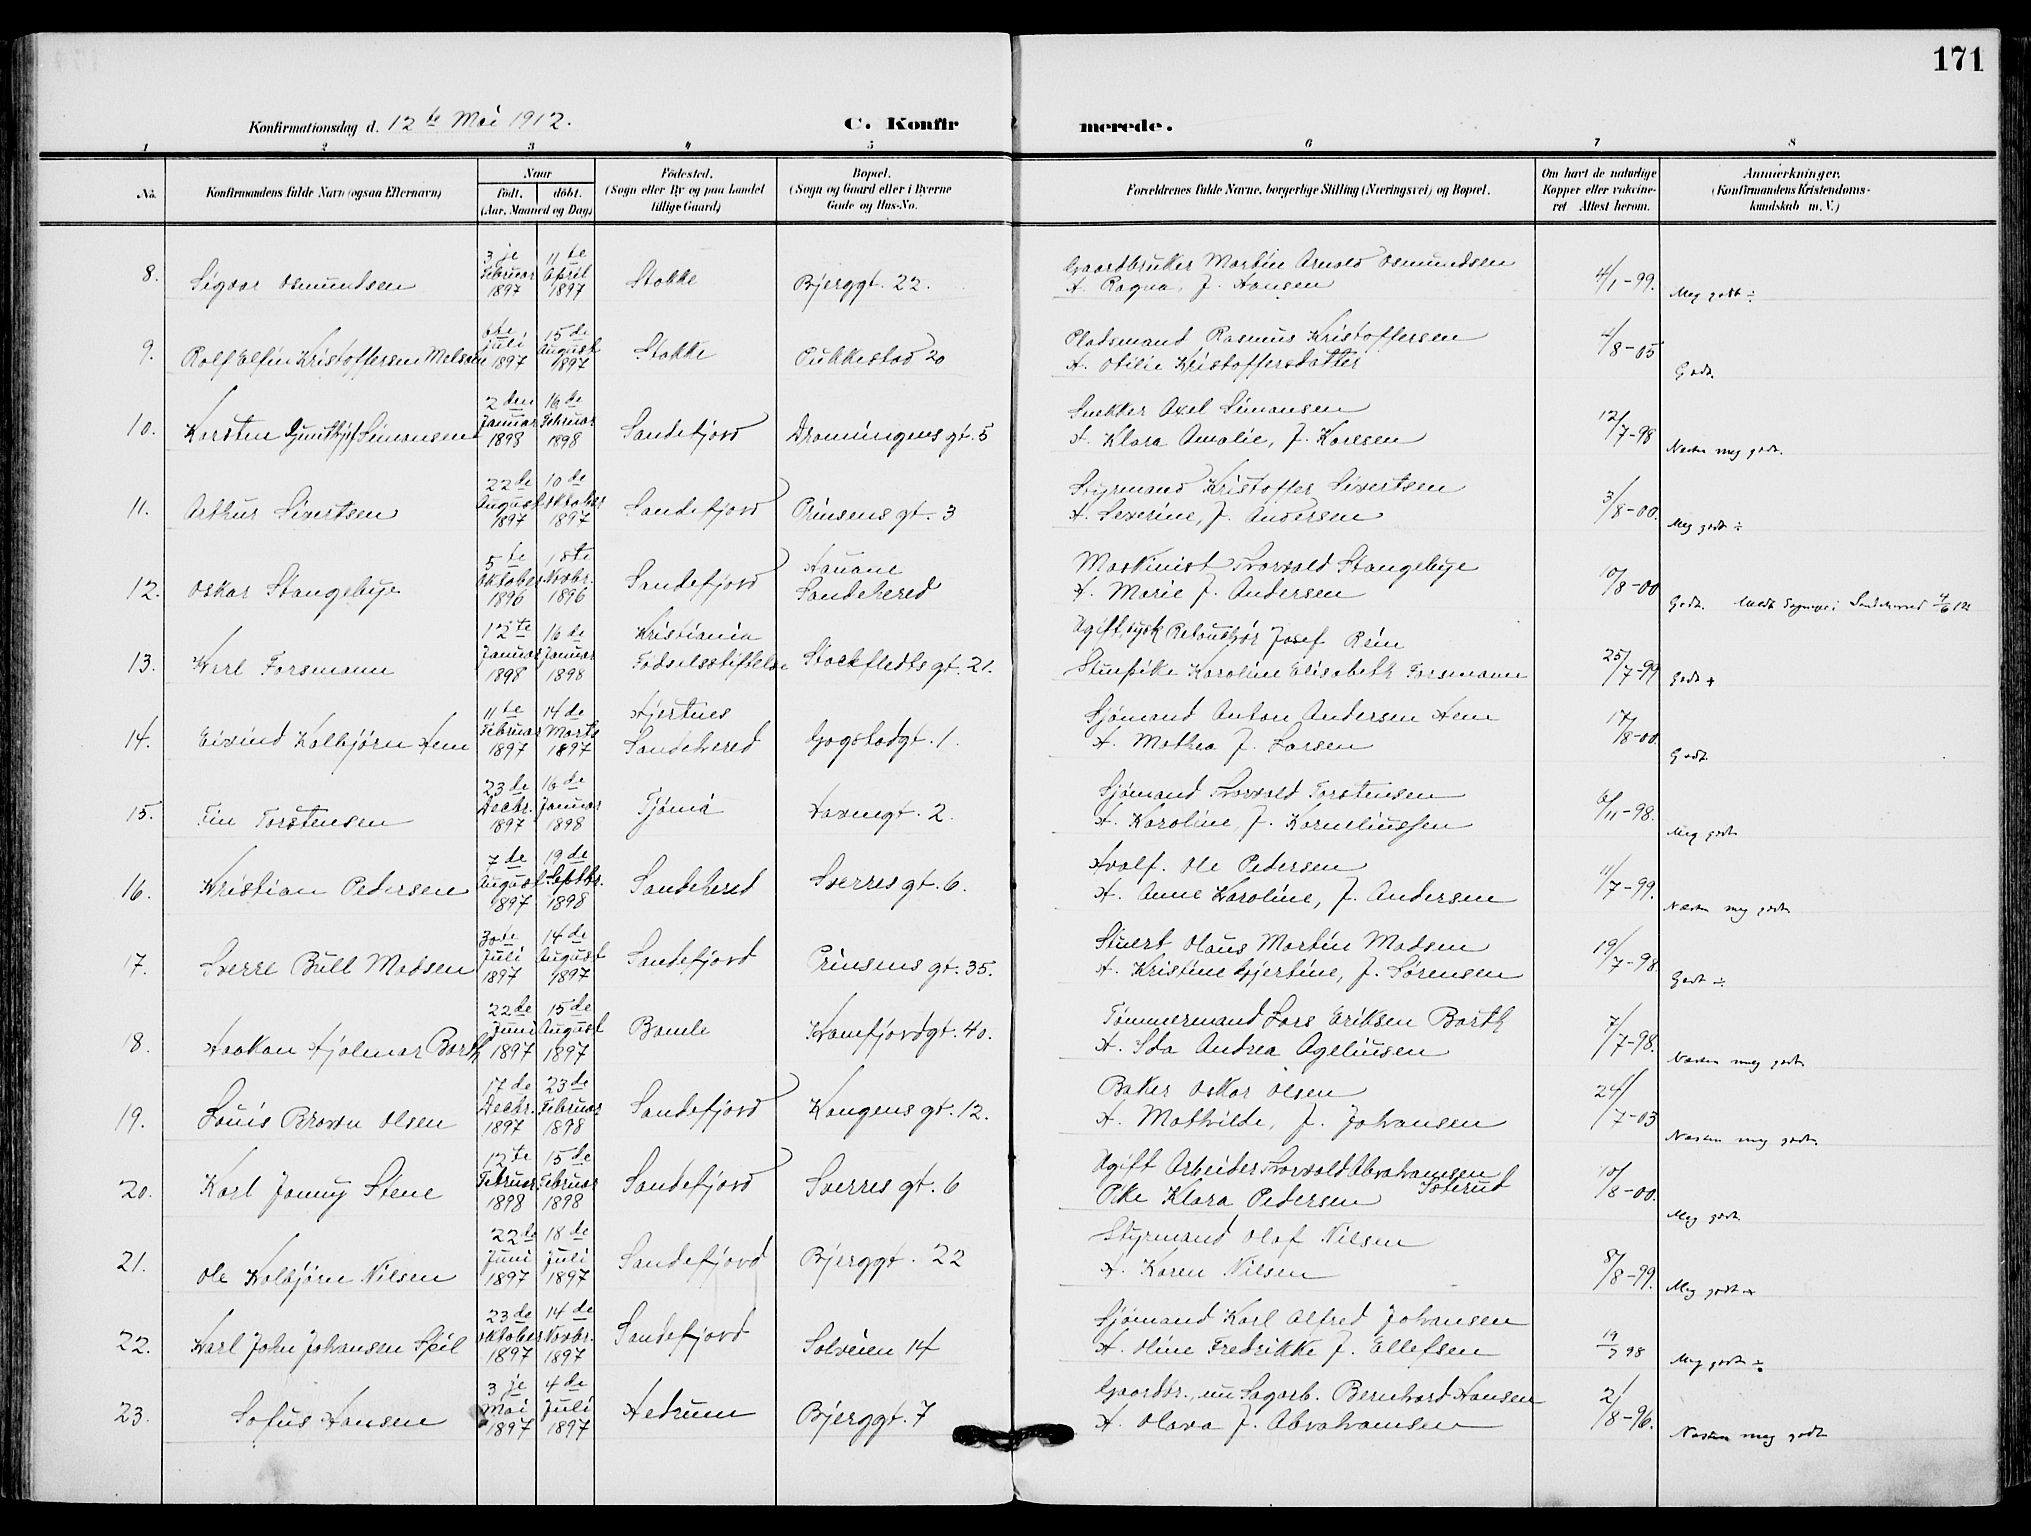 171
Konfirmationsdag d. 12te Mai 1912.
C. Konfirmerede.
1 2 3 4 5 6 7 8
No.
Konfirmandens fulde Navn (ogsaa Efternavn)
Naar
født. døbt.
(Aar, Maaned og Dag)
Födested.
(Sogn eller By og paa Landet
tillige Gaard)
Bopæl.
(Sogn og Gaard eller i Byerne
Gade og Hus-No.
Forældrenes fulde Navne, borgerlige Stilling (Næringsvei) og Bopæl.
Om havt de naturlige
Kopper eller vakcine-
ret Attest herom.
Anmærkninger.
(Konfirmandens Kristendoms-
kundskab m. V.)
8. Sigvar Osmundsen 3je Februar 1897 11te April 1897 Stokke Bjerggt. 22. Gaardbruker Martin Arnold Osmundsen
H. Ragna, f. Hansen 4/1-99. Meg godt ÷
9. Rolf Elfin Kristoffersen Melsom 6te Juli 1897 15de August 1897 Stokke Pukkestad 20 Pladsmand Rasmus Kristoffersen
H. Otilie Kristoffersdatter 4/8-05 Godt.
10. Karsten Simonsen 2den Januar 1898 16de Februar 1898 Sandefjord Dronningens gt. 5 Snekker Axel Simonsen
H. Klara Amalie, f. Karlsen 12/7-98 Næsten meg godt.
11. Arthur Sivertsen 22de August 1897 10de Oktober 1897 Sandefjord Prinsens gt. 3 Styrmand Kristoffer Sivertsen
H. Severine, f. Andersen 3/8-00. Meg godt ÷
12. Oskar Stangebye 5te Oktober 1896 18te Novbr. 1896 Sandefjord Hauane Sandeherred Maskinist Thorvald Stangebye
H. Marie f. Andersen 10/8-00 Godt. Sandeherred 4/6 12
13. Karl Forsmann 12te Januar 1898 16de Januar 1898 Kristiania Fødselsstiftelse Stockfledts gt. 21. Ugift, tysk Retouchør Josef Rein
Stuepike Karoline Elisabeth Forsmann 25/7-99 Godt +
14. Eivind Kolbjørn Hem 11te Februar 1897 14de Marts 1897 Hjertnes Sandeherred Gogstadgt. 1. Sjømand Anton Andersen Hem
H. Mathea f. Larsen 17/8-00. Godt
15. Fin Torstensen 23de Decbr. 1897 16de Januar 1898 Tjømø Havnegt. 2. Sjømand Thorvald Torstensen
H. Karoline f. Korneliussen 6/11-98. Meg godt
16. Kristian Pedersen 7de August 1897 19de Septbr. 1898 Sandeherred Sverres gt. 6. Hvalf. Ole Pedersen
H. Anne Karoline, f. Andersen 11/7-99. Næsten meg godt
17. Sverre Bull Madsen 30te Juli 1897 14de August 1897 Sandefjord Prinsens gt. 35. Stuert Olaus Martin Madsen
H. Kristine Gjertine, f. Sørensen 19/7-98. Godt ÷
18. Haakon Hjalmar Barth 22de Juni 1897 15de August 1897 Bamle Kamfjordgt. 40. Tømmermand Lars Eriksen Barth
H. Ida Andrea Ageliusen 7/7-98. Næsten meg godt
19. Louis Brown Olsen 17de Decbr. 1897 23de Februar 1898 Sandefjord Kongens gt. 12. Baker Oskar Olsen
H. Mathilde, f. Johansen 24/7-03 Næsten meg godt
20. Karl Jonny Stene 12te Februar 1898 15de Februar 1898 Sandefjord Sverres gt. 6 Ugift Arbeider Thorvald Abrahamsen
Pike Klara Pedersen Isterud 10/8-00. Meg godt
21. Ole Kolbjørn Nilsen 22de Juni 1897 18de Juli 1897 Sandefjord Bjerggt. 22 Styrmand Olaf Nilsen
H. Karen Nilsen 8/8-99. Meg godt +
22. Karl John Johansen Speil 23de Oktober 1897 14de Novbr. 1897 Sandefjord Solveien 14 Sjømand Karl Alfred Johansen
H. Oline Fredrikke f. Ellefsen 19/7 98 Meg godt ÷
23. Sofus Hansen 3je Mai 1897 4de Juli 1897 Hedrum Bjerggt. 7 Gaardbr., nu Sagarb. Bernhard Hansen
H. Olava f. Abrahamsen 2/8-96. Næsten meg godt